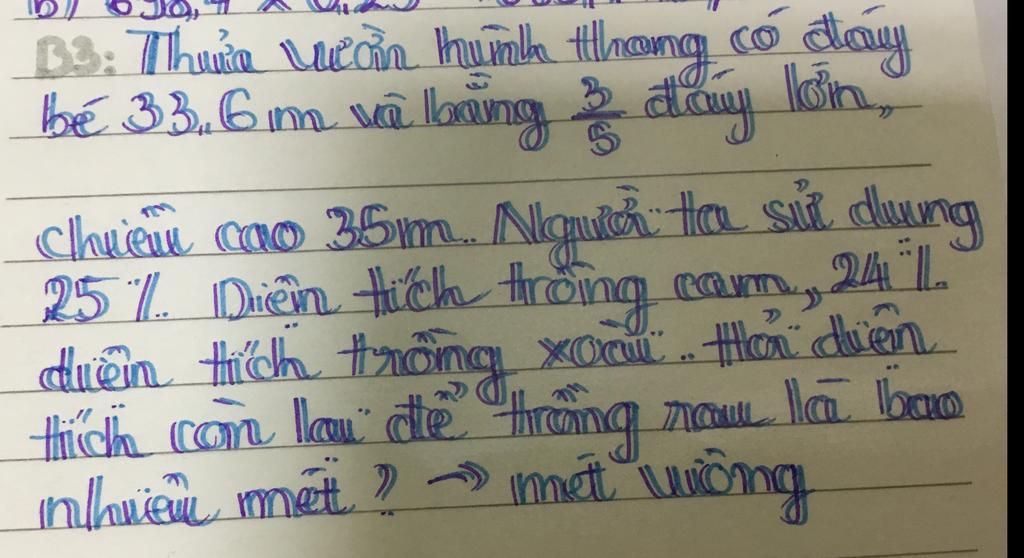 B3: Thửa vườn hình thang có đáy
bé 33,6m và bằng 3/5 đáy lớn,
chiều cao 35m. Người ta sử dụng
25%. Diện tích trồng cam, 24%.
diện tích trồng xoài. Hỏi diện
tích còn lại để trồng rau là bao
nhiêu mét? → mét vuông